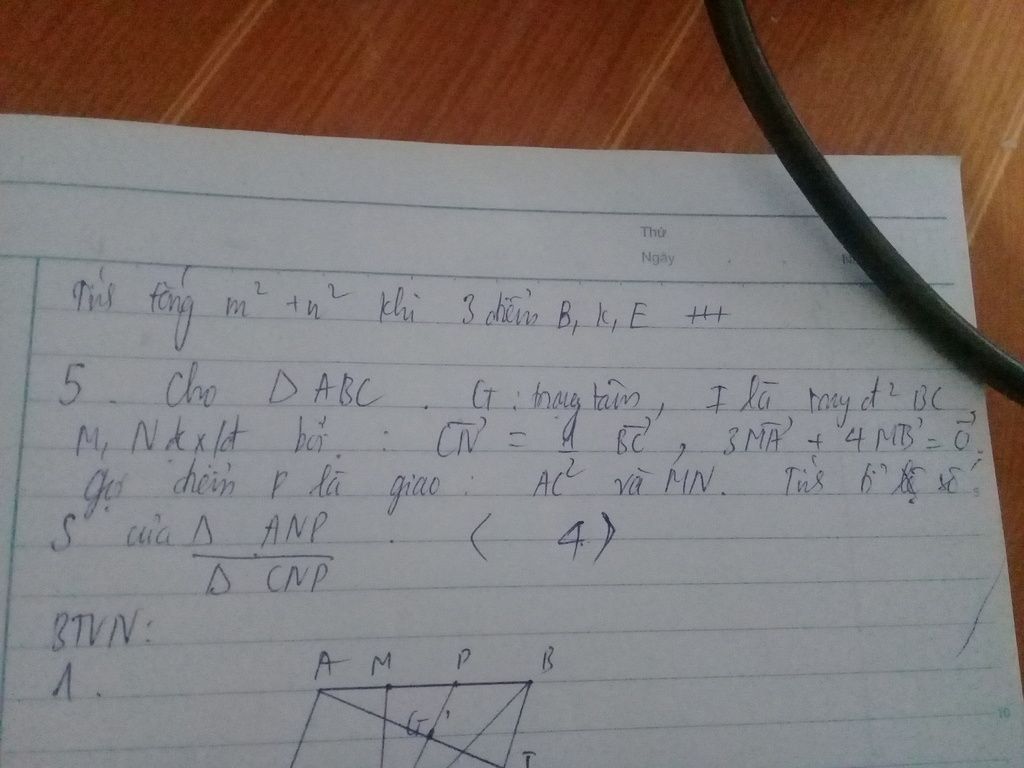 Thứ
Ngày
Tính tổng m² + n² khi 3 điểm B, K, E +++
5. Cho Δ ABC. G: trọng tâm, I là trung đ² BC
M, N đc x/đ bởi: CN⃗ = 1/2 BC⃗, 3MA⃗ + 4MB⃗ = 0⃗.
gọi điểm P là giao: AC và MN. Tính tỉ số
S của Δ ANP / Δ CNP. (4)
BTVN:
1.
A M P B
G
I
10